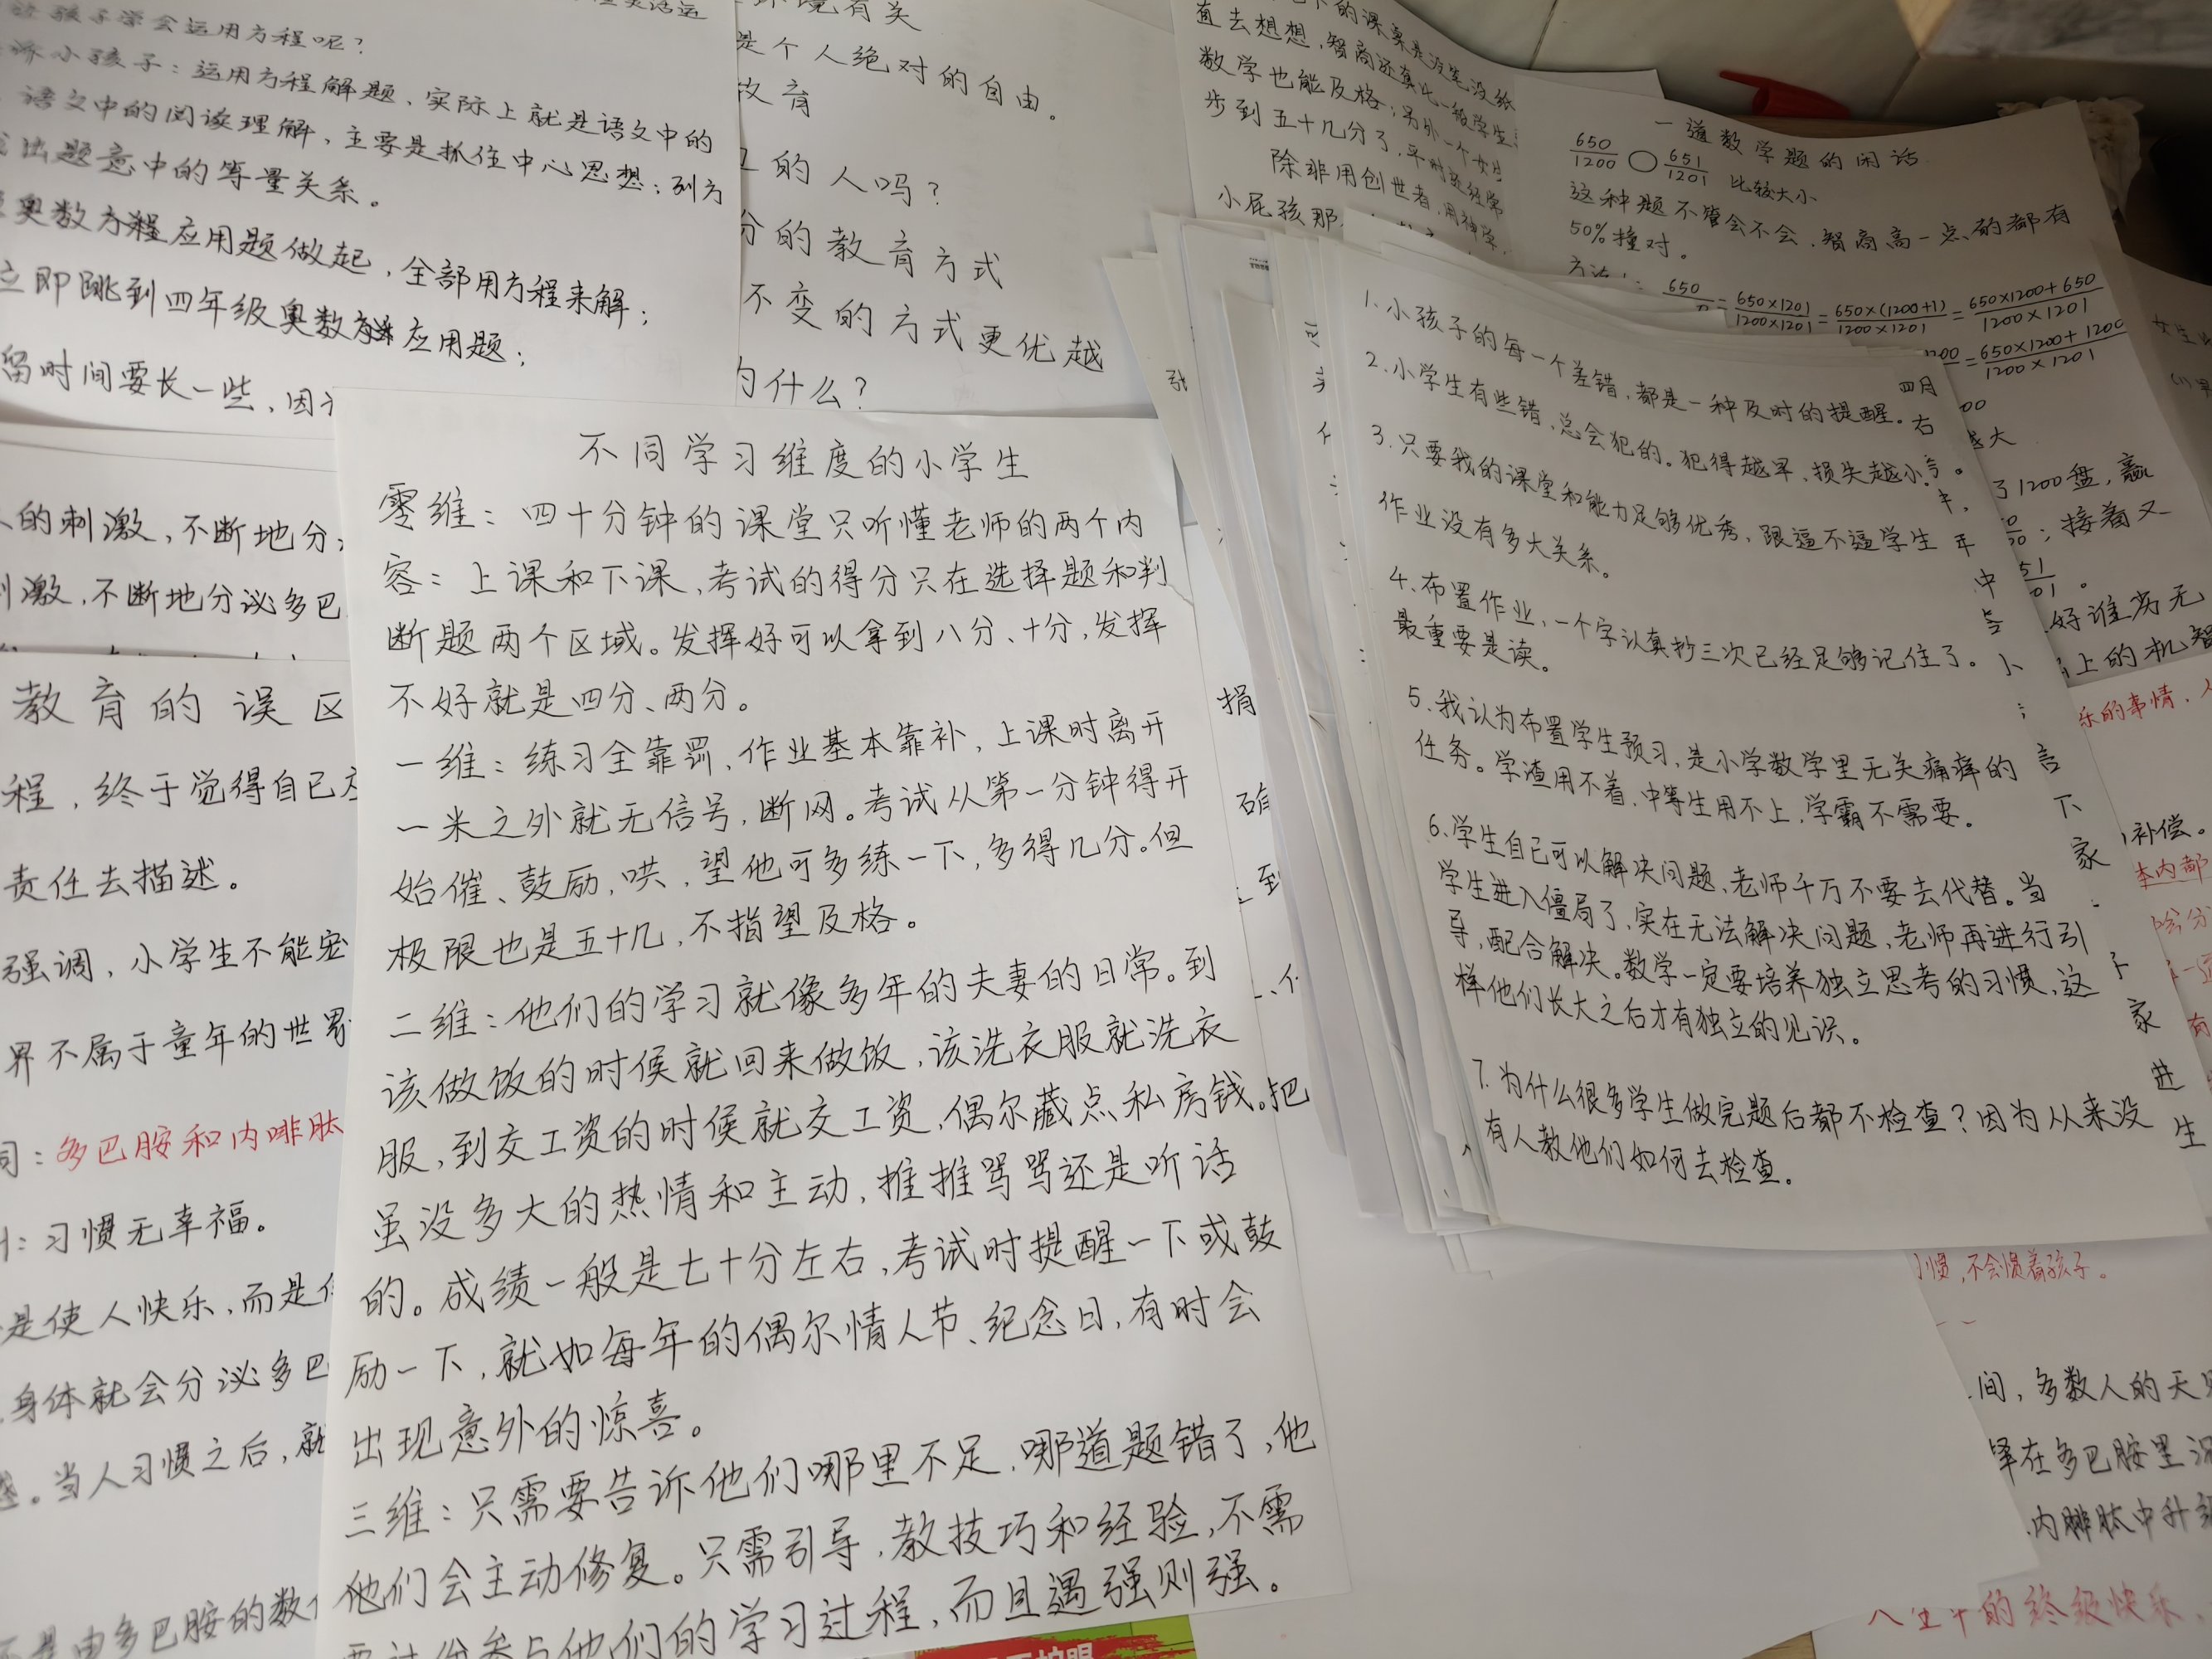 孩子学会运用方程呢？
诉小孩子：运用方程解题，实际上就是语文中的
语文中的阅读理解，主要是抓住中心思想；列方
出题意中的等量关系。
奥数方程应用题做起，全部用方程来解；
立即跳到四年级奥数方程应用题；
留时间要长一些，因
环境有关
是个人绝对的自由。
教育
的人吗？
分的教育方式
不变的方式更优越
为什么？
的课桌是没笔没纸
直去想想，智商还真比一般学生
数学也能及格；另外一个女生
步到五十几分了，平时还经常
除非用创世者，用神学，
小屁孩那
一道数学题的闲话
650/1200 ○ 651/1201 比较大小
这种题不管会不会，智商高一点的都有
50%撞对。
650 = 650×1201/1200×1201 = 650×(1200+1)/1200×1201 = 650×1200+650/1200×1201
= 650×1200+1200/1200×1201
了1200盘，赢
；接着又
好谁劣无
上的机智
乐的事情，
补偿。
本内部
的刺激，不断地分
激，不断地分泌多巴
教育的误区
程，终于觉得自己
责任去描述。
强调，小学生不能
界不属于童年的世界
：多巴胺和内啡肽
：习惯无幸福。
是使人快乐，而是
身体就会分泌多巴
。当人习惯之后，就
是由多巴胺的数
不同学习维度的小学生
零维：四十分钟的课堂只听懂老师的两个内
容：上课和下课，考试的得分只在选择题和判
断题两个区域。发挥好可以拿到八分、十分，发挥
不好就是四分、两分。
一维：练习全靠罚、作业基本靠补，上课时离开
一米之外就无信号，断网。考试从第一分钟得开
始催、鼓励，哄，望他可多练一下，多得几分。但
极限也是五十几，不指望及格。
二维：他们的学习就像多年的夫妻的日常。到
该做饭的时候就回来做饭，该洗衣服就洗衣
服，到交工资的时候就交工资，偶尔藏点私房钱。把
虽没多大的热情和主动，推推骂骂还是听话
的。成绩一般是七十分左右，考试时提醒一下或鼓
励一下，就如每年的偶尔情人节、纪念日，有时会
出现意外的惊喜。
三维：只需要告诉他们哪里不足，哪道题错了，他
他们会主动修复。只需引导，教技巧和经验，不需
要过份参与他们的学习过程，而且遇强则强。
1.小孩子的每一个差错，都是一种及时的提醒。
2.小学生有些错，总会犯的。犯得越早、损失越小。
3.只要我的课堂和能力足够优秀，跟逼不逼学生
作业没有多大关系。
4.布置作业，一个字认真抄三次已经足够记住了。
最重要是读。
5.我认为布置学生预习，是小学数学里无关痛痒的
任务。学渣用不着，中等生用不上，学霸不需要。
6.学生自己可以解决问题，老师千万不要去代替。当
学生进入僵局了，实在无法解决问题，老师再进行引
导，配合解决。数学一定要培养独立思考的习惯，这
样他们长大之后才有独立的见识。
7.为什么很多学生做完题后都不检查？因为从来没
有人教他们如何去检查。
四月
右
中
言
下
家
家
进
生
惯，不会惯着孩子。
间，多数人的天
在多巴胺里沉
内啡肽中升
的终级快乐